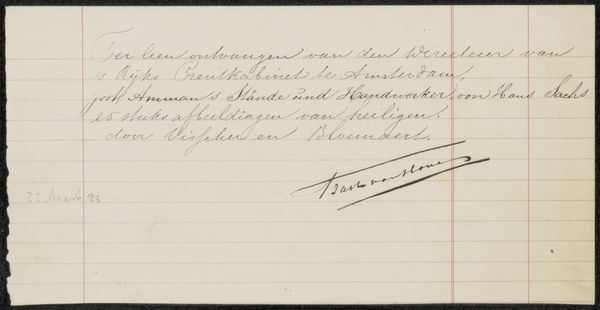 Ter leen ontvangen van den Directeur van
's Rijks Prentkabinet te Amsterdam,
Jost Amman's Stände und Handwerker, von Hans Sachs
25 stuks afbeeldingen van heiligen.
door Visscher en Bloemaert.
Bart van Hove
22 83